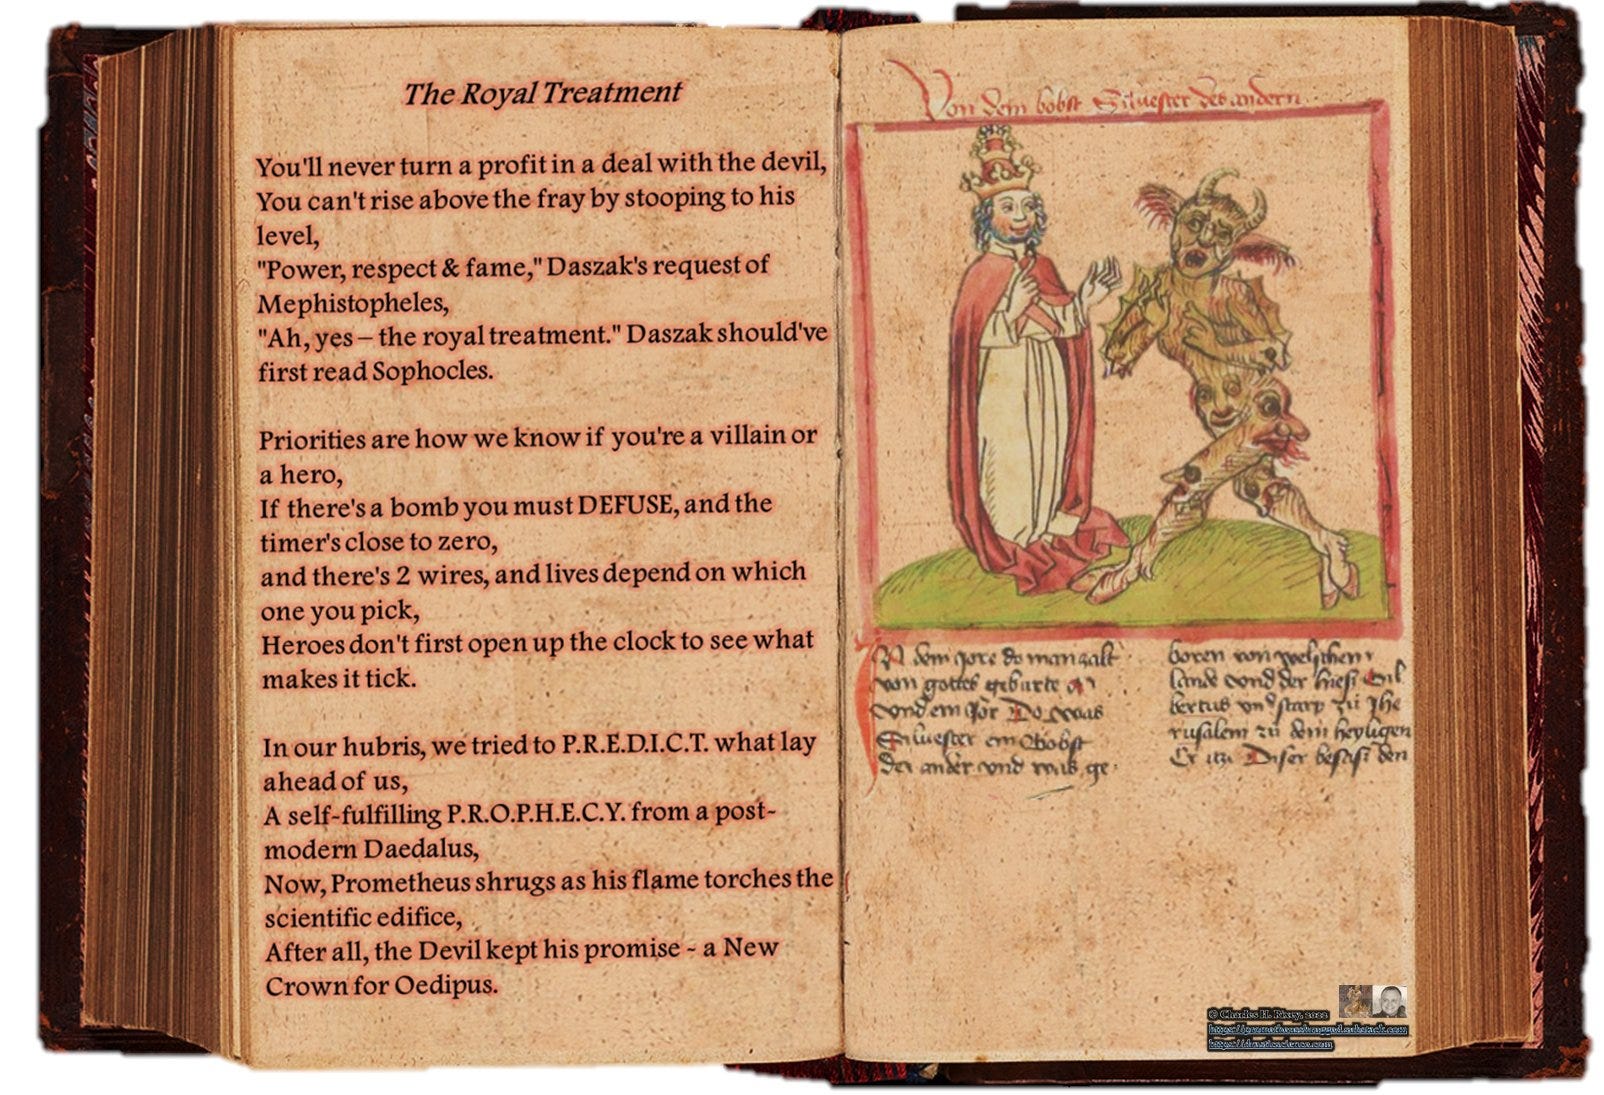 The Royal Treatment
You'll never turn a profit in a deal with the devil,
You can't rise above the fray by stooping to his
level,
"Power, respect & fame," Daszak's request of
Mephistopheles,
"Ah, yes – the royal treatment." Daszak should've
first read Sophocles.
Priorities are how we know if you're a villain or
a hero,
If there's a bomb you must DEFUSE, and the
timer's close to zero,
and there's 2 wires, and lives depend on which
one you pick,
Heroes don't first open up the clock to see what
makes it tick.
In our hubris, we tried to P.R.E.D.I.C.T. what lay
ahead of us,
A self-fulfilling P.R.O.P.H.E.C.Y. from a post-
modern Daedalus,
Now, Prometheus shrugs as his flame torches the
scientific edifice,
After all, the Devil kept his promise - a New
Crown for Oedipus.
Von dem bobst Siluester des andern
IN dem Jore do man zalt
von gottes geburte
vnd ein Jor Do was
Siluester ein Bobst
der ander vnd was ge
boren von welschem
lande vnd der hies Gil
bertus vnd starp zu Jhe
rusalem zu dem heyligen
Diser besass den
© Charles H. Rixey, 2022